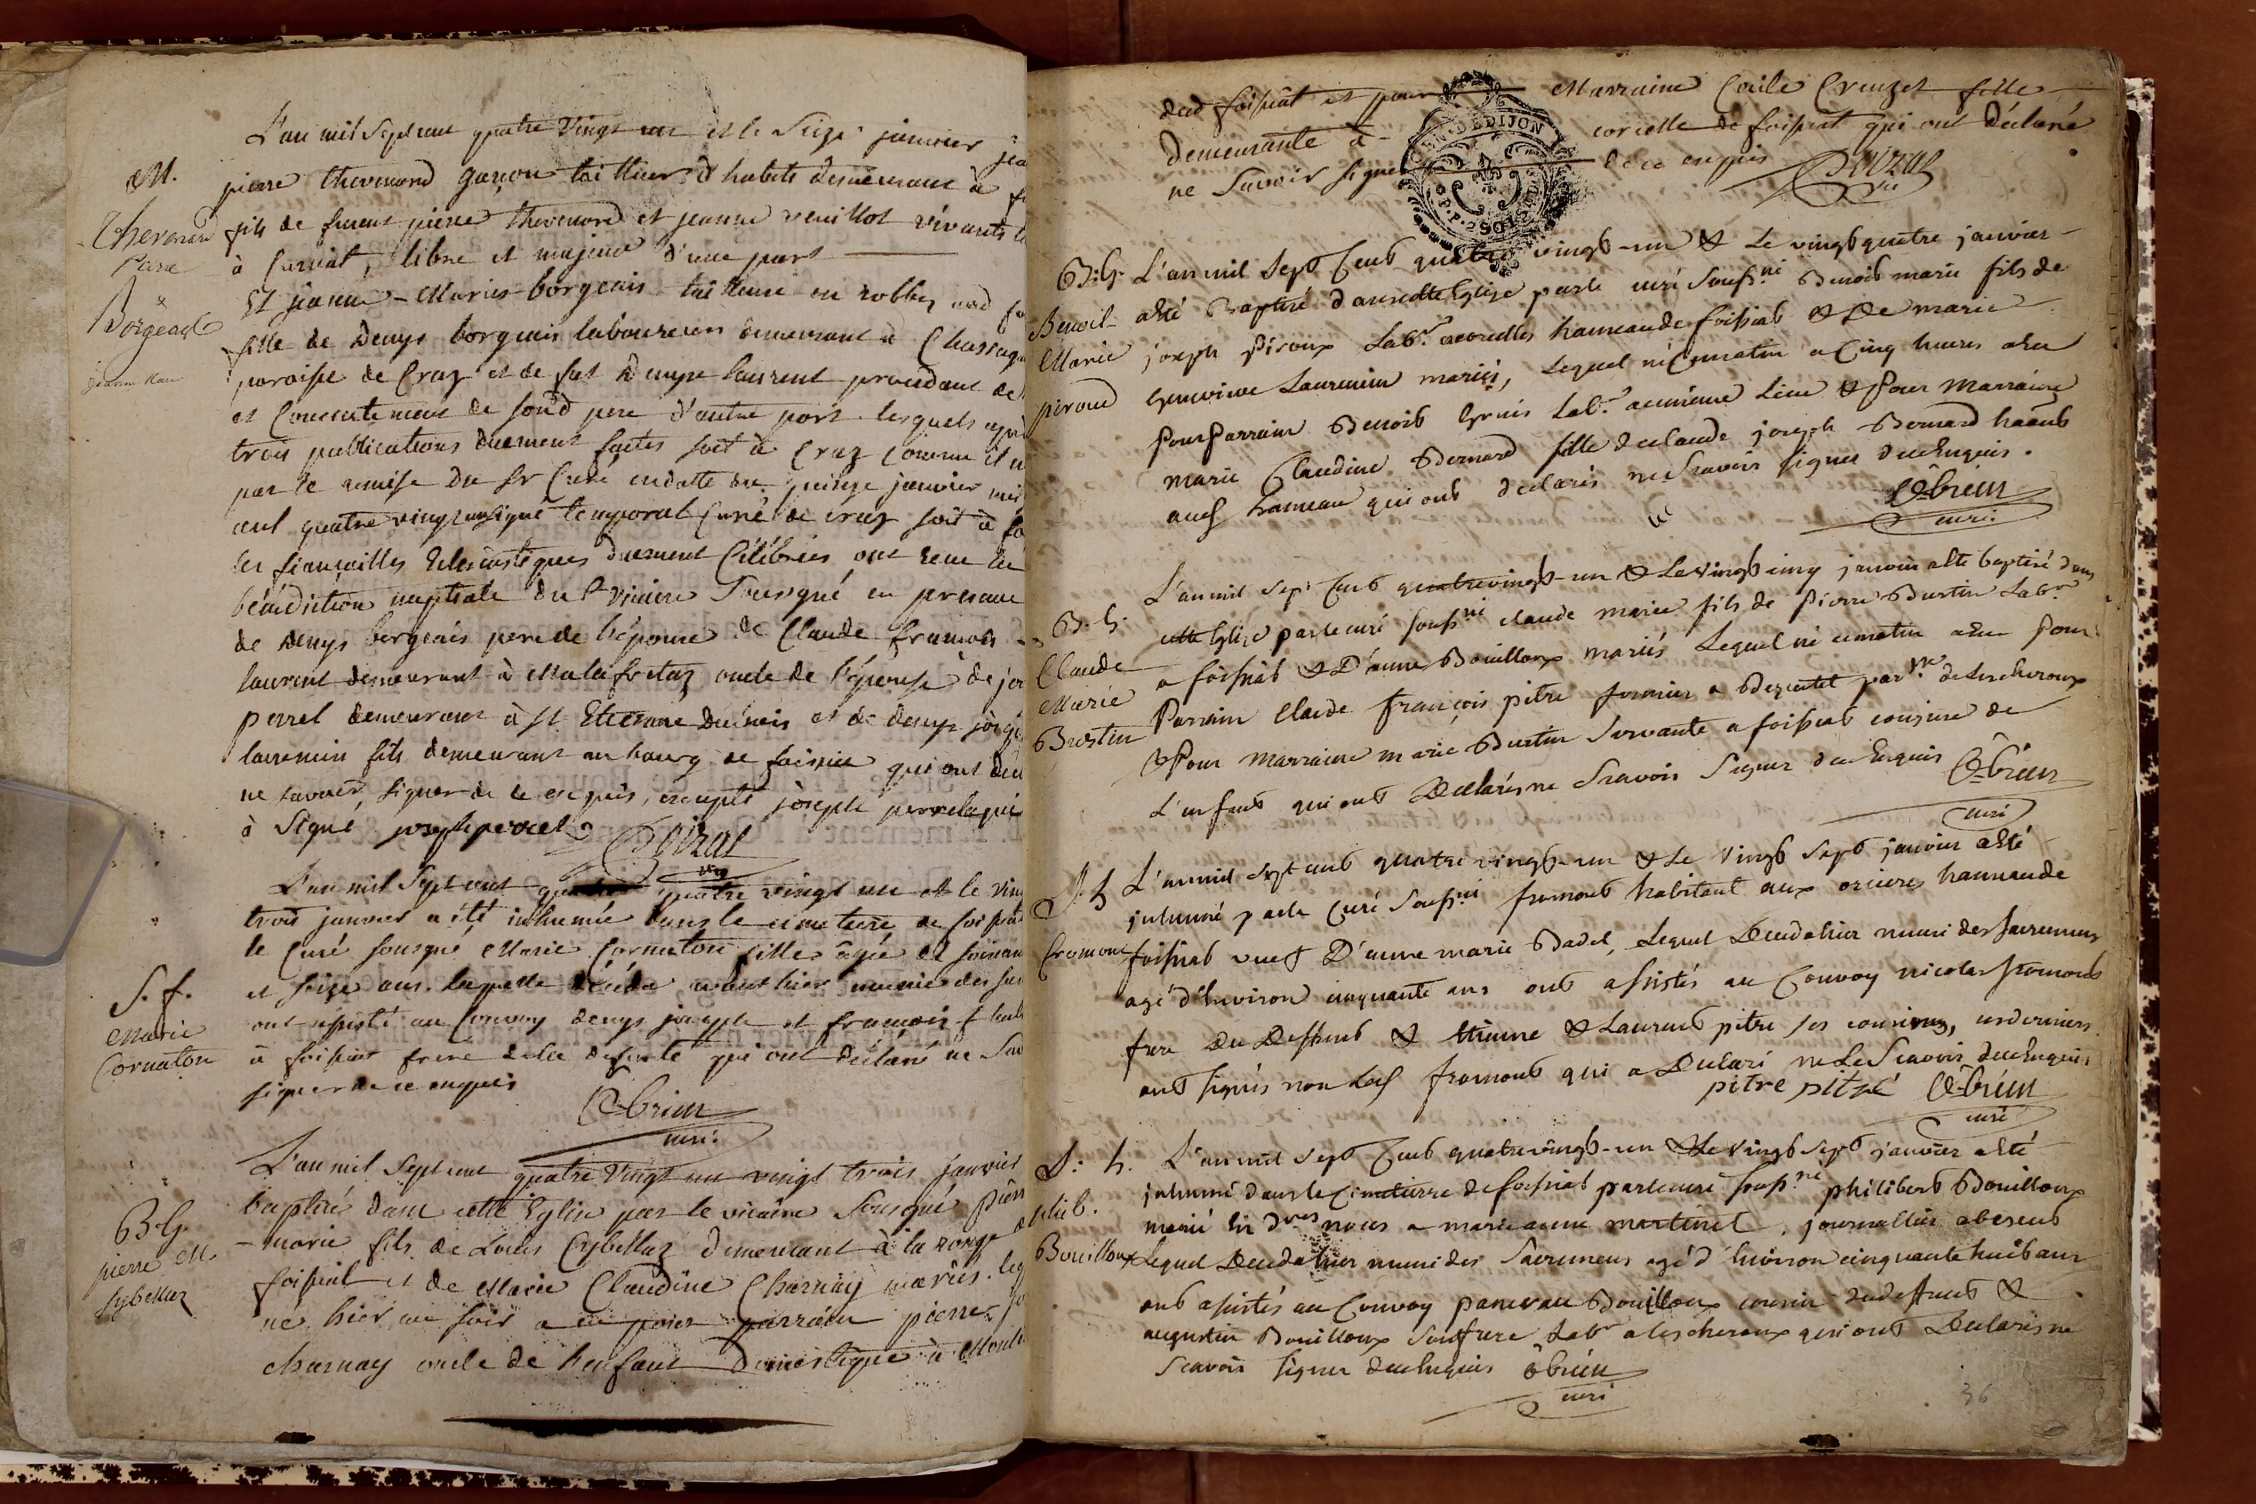 L'an mil sept cent quatre vingt un et le seize janvier jea
M.
pierre thevenard garçon tailleur d'habits demeurant à
Thevenard
fils de furent pierre thevenard et jeanne veuillot vivants
Pierre
à Curciat, libre et majeur d'une part
x
Et jeanne-Marie borgeais tailleuse en robbes
Borgeais
fille de Denys borgeais laboureur demeurant à Chassagn
jeanne Marie
paroisse de Craz et de fut Denyse laurent procedant de
et Consentement de sond pere d'autre part lesquels apr
trois publications duement faites soit à Craz comme il
par le remise du Sr Curé en datte du quinze janvier mil
cent quatre vingt un signé temporal Curé de craz soit à
les fiançailles Eclesiastiques duement Célébrées ont reçu la
bénédiction nuptiale du Sr vicaire Sousigné en presence
de Denys borgeais pere de l'épouse de Claude françois
laurent demeurant à Malafretaz oncle de l'épouse de jo
perrel demeurant à St Etienne Dubois et de denys joseph
lauremin fils demeurant au bourg de foissia qui ont déc
ne savoir signer de ce enquis, excepté joseph perrel qui
à Signé, joseph perrel Poizat
vic
L'an mil sept cent quatre vingt un et le ving
trois janvier a été inhumée dans le cimetiere de foissiat
le Curé sousigné Marie Cornaton fille âgée de soixan
S. f.
et seize ans. laquelle décéda avant hier munie des sac
Marie
ont assisté au Convoy denys joseph et françois
Cornaton
à foissiat frere de la defunte qui ont déclaré ne Sav
signer de ce enquis
Ôbrien
curé
L'an mil sept cent quatre vingt un vingt trois janvier
B. G.
baptisé dans cette Eglise par le vicaire Sousigné pierr
pierre M.
marie fils de Louis Cybellaz demeurant à la
Sybellaz
foissiat et de Marie Claudine Charnay mariés. leq
né hier au soir a eu pour parrain pierre
charnay oncle de l'enfant Domestique à
dud foissiat et pour Marraine Cécile Creuzet fille
demeurante à corcelle de foissiat qui ont déclaré
ne Savoir signer de ce enquis Poizat
vic
GEN. DE DIJON
B. G. L'an mil sept Cent quatre vingt-un & Le vingt quatre janvier
Benoit aété Baptisé dans cette Eglise par le curé Souss.né Benoit marie fils de
Marie joseph Piroux Lab.r acorcelles hameau de foissiat & De marie
piroud Genevieve Lauremin mariés, Lequel né Cematin a Cinq heures a eu
Pour Parrain Benoit Lab.r aumême Lieu & Pour Marraine
marie Claudine Bernard fille de claude joseph Bernard habt
aud hameau qui ont declarés ne Sçavoir signer de ce Enquis.
Ôbrien
curé
L'an mil Sept Cent quatrevingt-un & Le vingt cinq janvier a été baptisé dans
B. G. cette Eglise par le curé souss.né claude marie fils de Pierre Burtin Lab.r
Claude a foissiat & D'anne Bouilloux mariés Lequel né cematin a eu Pour
Marie Parrain Claude françois pitre fermier a par.se delescheroux
Burtin & Pour marraine marie Burtin Servante a foissiat cousine de
L'enfant qui ont Declarés ne Sçavoir Signer de ce Enquis Ôbrien
curé
L'an mil sept cent quatre vingt-un & Le vingt sept janvier aété
inhumé par le Curé Souss.né fromont habitant aux hameau de
Cromont foissiat veuf D'anne marie Badel, Lequel Deceda hier muni des sacremens
agé d'Environ cinquante ans ont assistés au Convoy nicolas fromont
frere du Deffunt & Etienne & Laurent pitre ses cousins, ces derniers
ont signés non Led fromont qui a Declaré ne Le Sçavoir de ce Enquis
pitre pitre Ôbrien
curé
S. h. L'an mil sept Cent quatrevingt-un & Le vingt sept janvier aété
inhumé dans le Cimetierre de foissiat par le curé souss.né philibert Bouilloux
phib. marié En d.res noces a marie anne martinet, journallier abereus
Bouilloux Lequel Deceda hier muni des Sacremens agé d'Environ cinquante huit ans
ont assistés au Convoy Bouilloux cousin dudeffunt &
augustin Bouilloux Son frere Lab.r a lescheroux qui ont Declarés ne
Scavoir signer de ce Enquis Ôbrien
curé
36